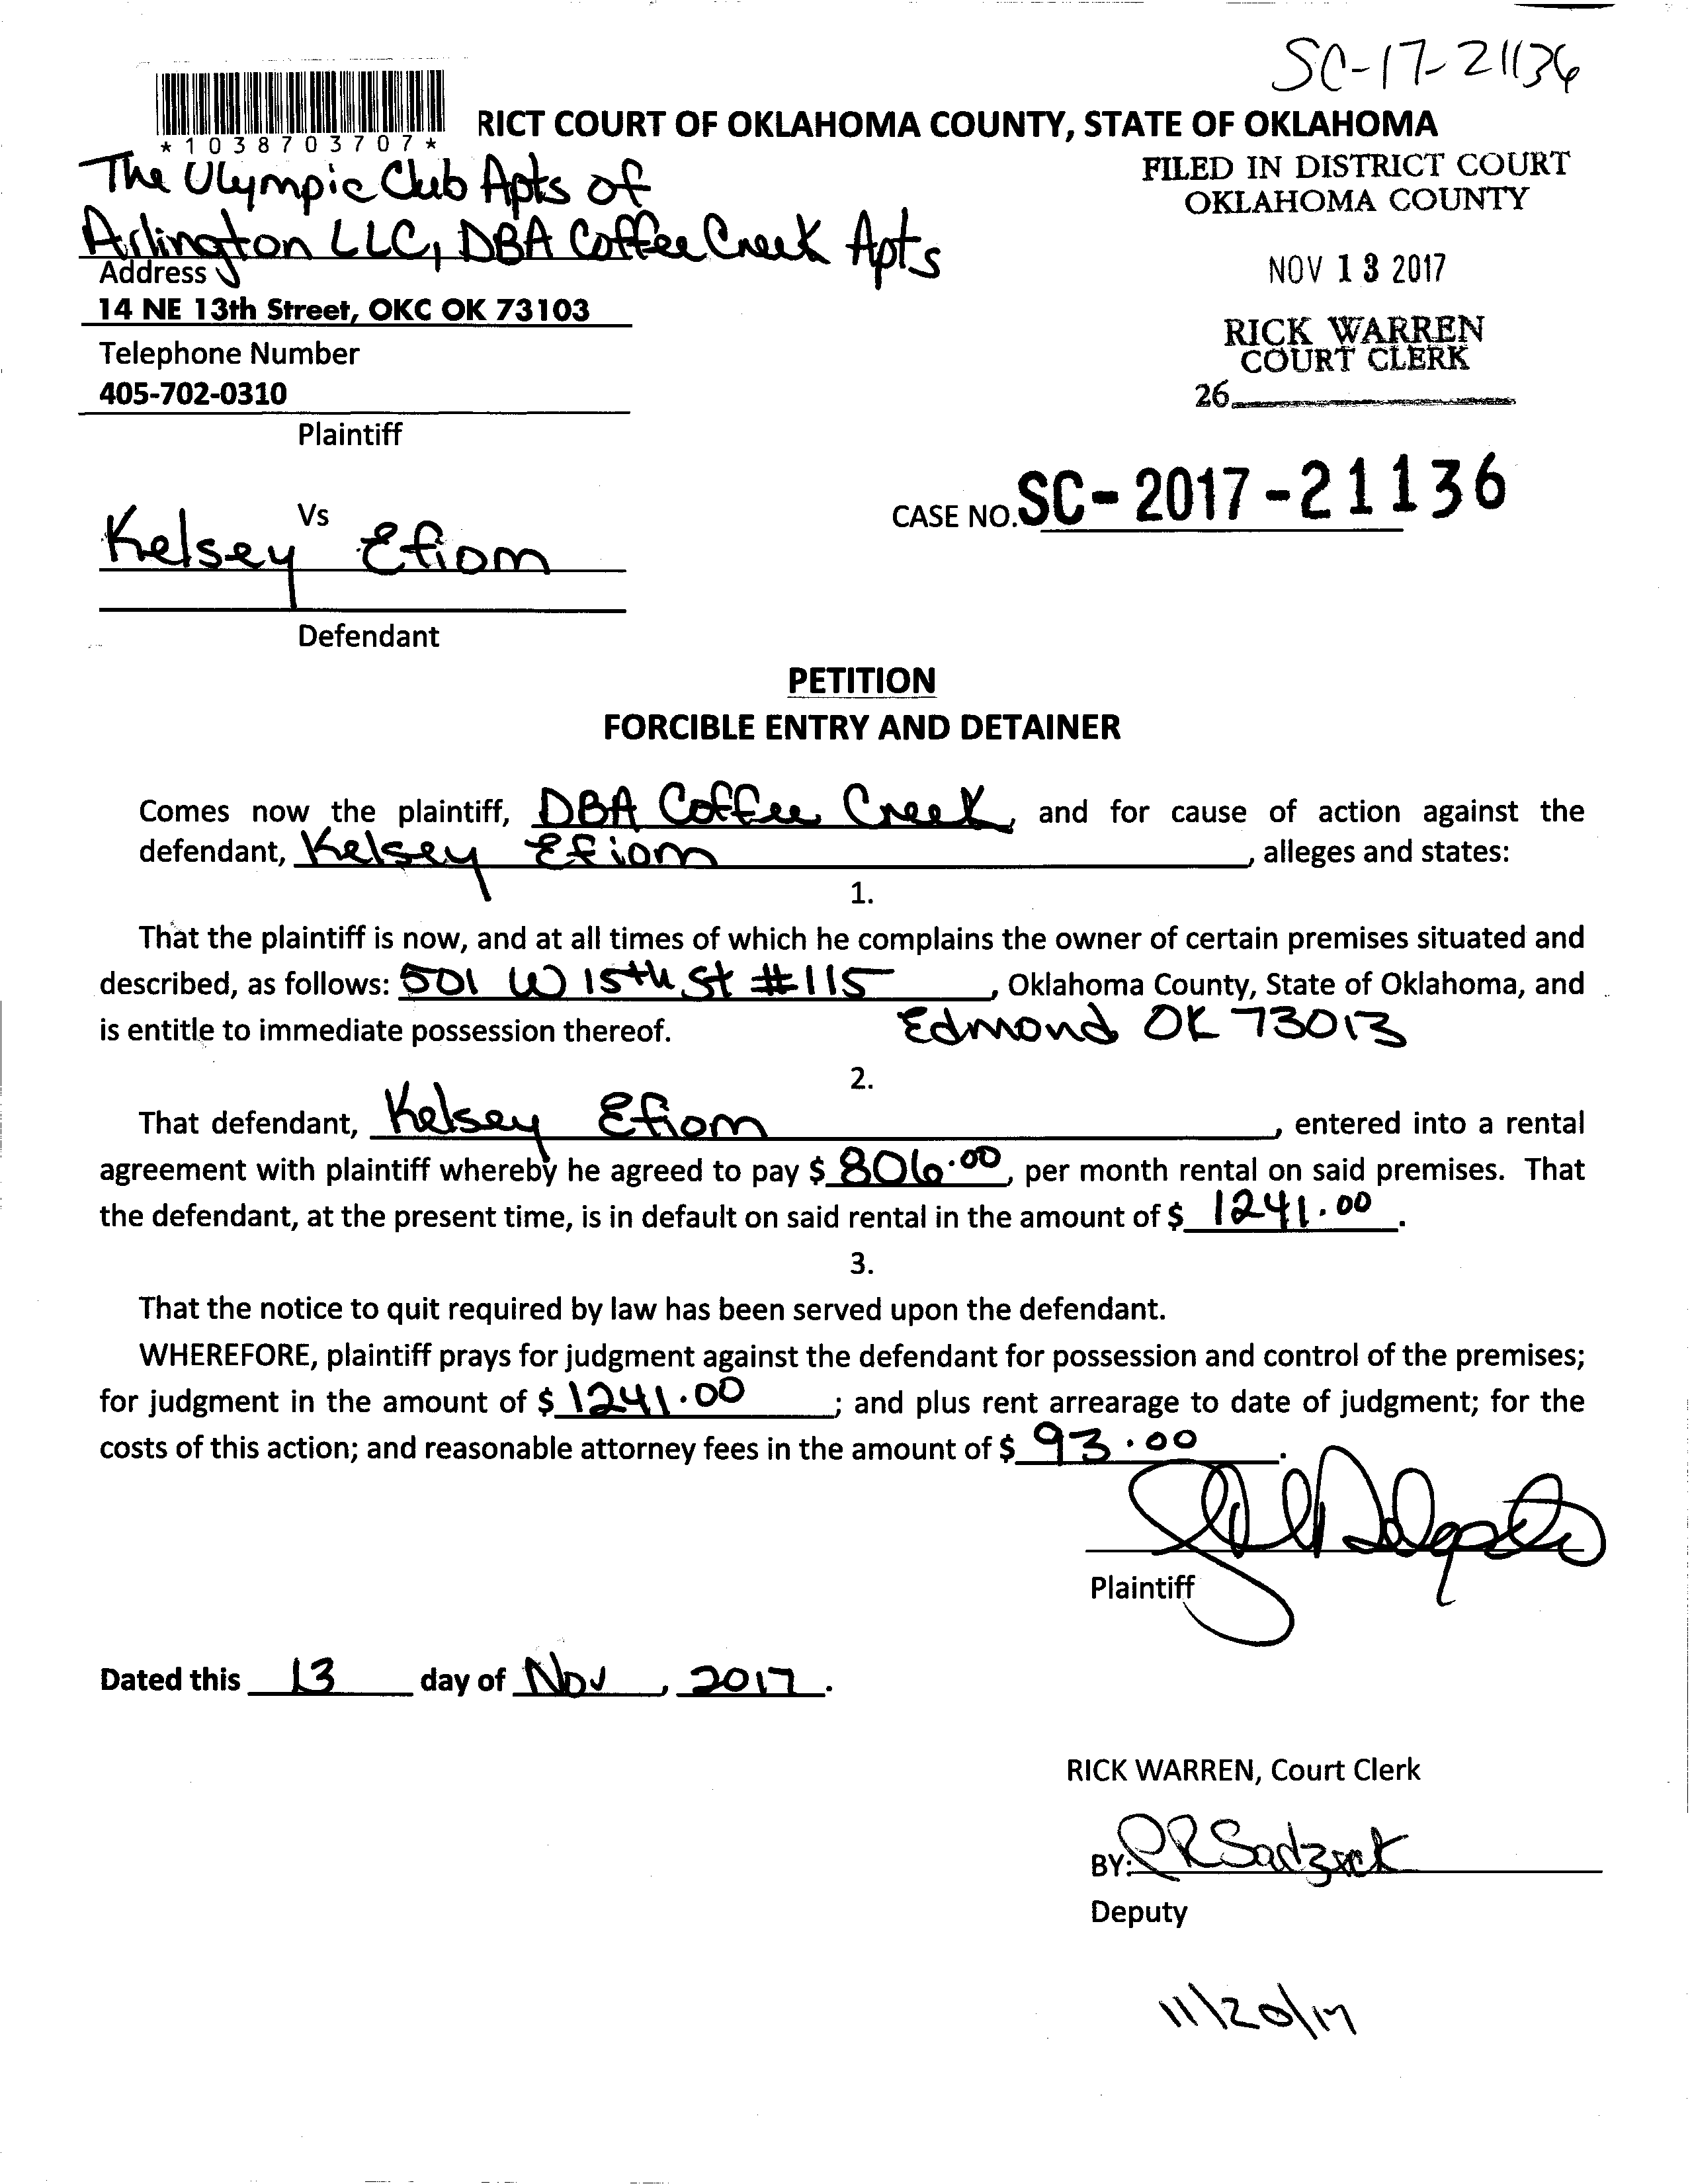 SC-17-21136
*1038703707*
RICT COURT OF OKLAHOMA COUNTY, STATE OF OKLAHOMA
The Olympic Club Apts of
Arlington LLC, DBA Coffee Creek Apts
FILED IN DISTRICT COURT
OKLAHOMA COUNTY
NOV 13 2017
RICK WARREN
COURT CLERK
26
Address
14 NE 13th Street, OKC OK 73103
Telephone Number
405-702-0310
Plaintiff
Vs
CASE NO. SC-2017-21136
Kelsey Efiom
Defendant
PETITION
FORCIBLE ENTRY AND DETAINER
Comes now the plaintiff, DBA Coffee Creek, and for cause of action against the
defendant, Kelsey Efiom, alleges and states:
1.
That the plaintiff is now, and at all times of which he complains the owner of certain premises situated and
described, as follows: 501 W 15th St #115, Oklahoma County, State of Oklahoma, and
is entitle to immediate possession thereof. Edmond OK 73013
2.
That defendant, Kelsey Efiom, entered into a rental
agreement with plaintiff whereby he agreed to pay $ 806.00, per month rental on said premises. That
the defendant, at the present time, is in default on said rental in the amount of $ 1241.00.
3.
That the notice to quit required by law has been served upon the defendant.
WHEREFORE, plaintiff prays for judgment against the defendant for possession and control of the premises;
for judgment in the amount of $ 1241.00; and plus rent arrearage to date of judgment; for the
costs of this action; and reasonable attorney fees in the amount of $ 93.00.
Plaintiff
Dated this 13 day of Nov, 2017.
RICK WARREN, Court Clerk
BY:
Deputy
11/20/17